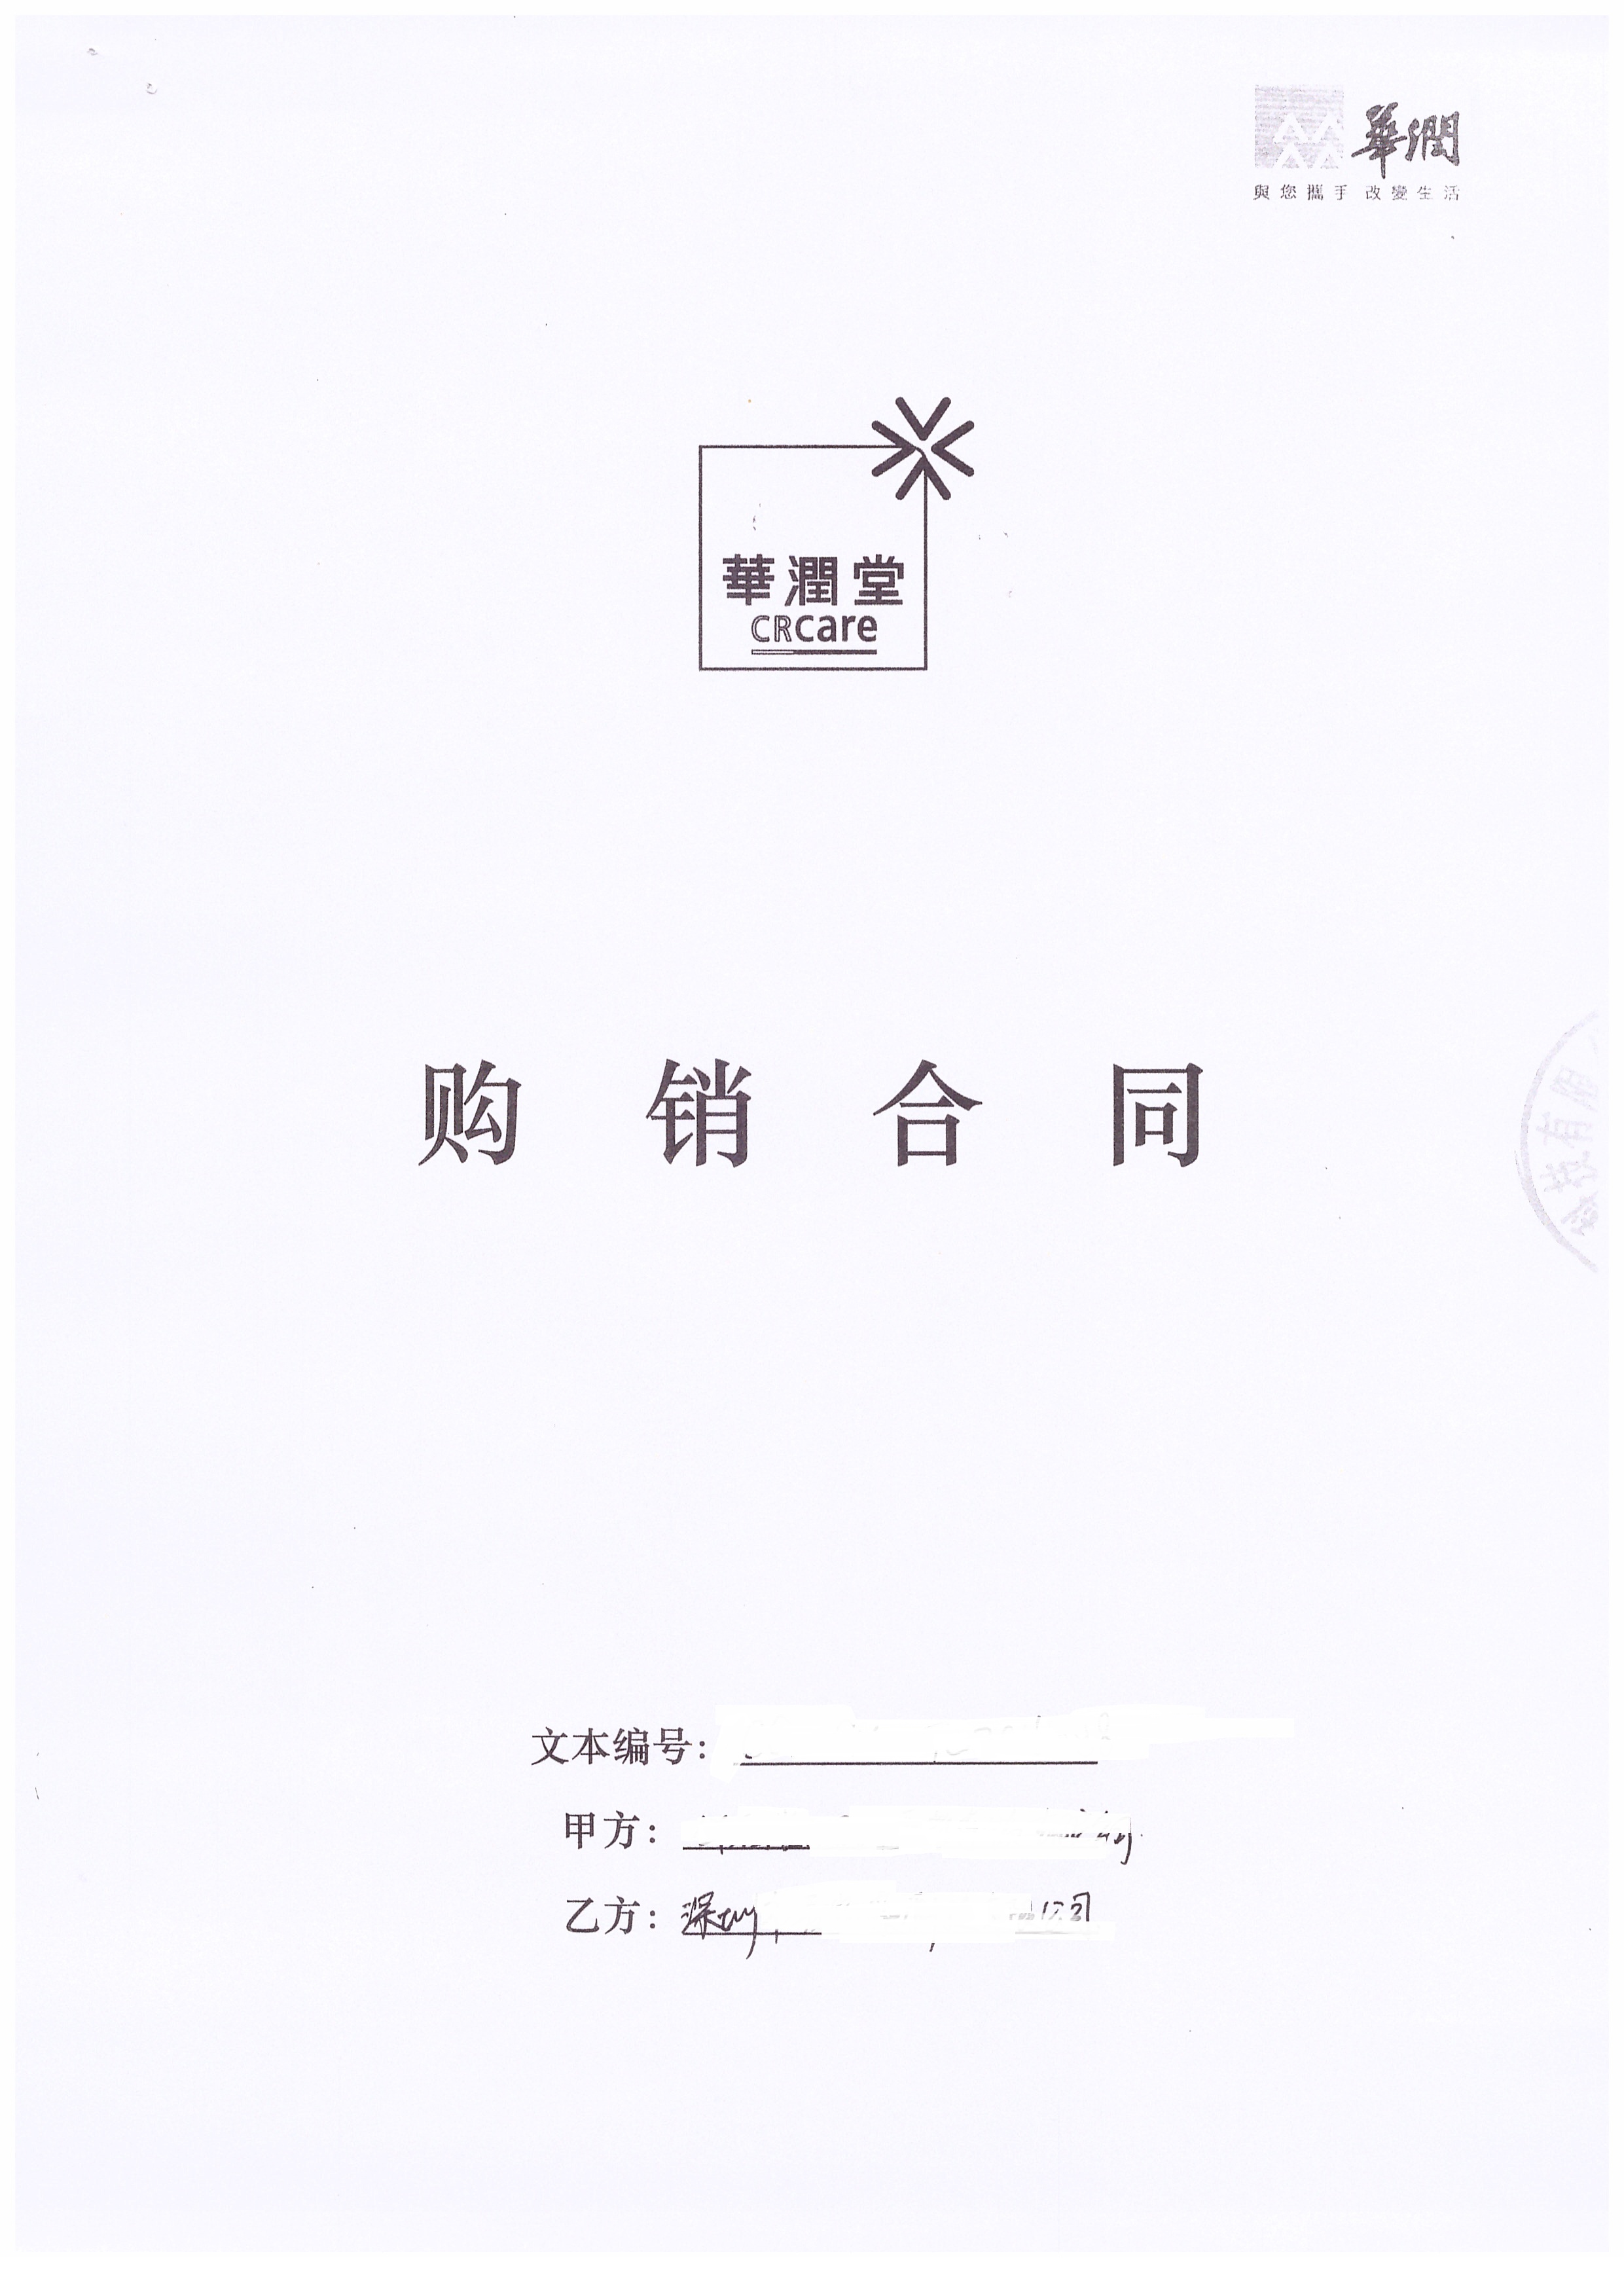 華潤
與您攜手 改變生活
華潤堂
CRcare
购销合同
有限
文本编号：
甲方：
乙方：深圳
公司